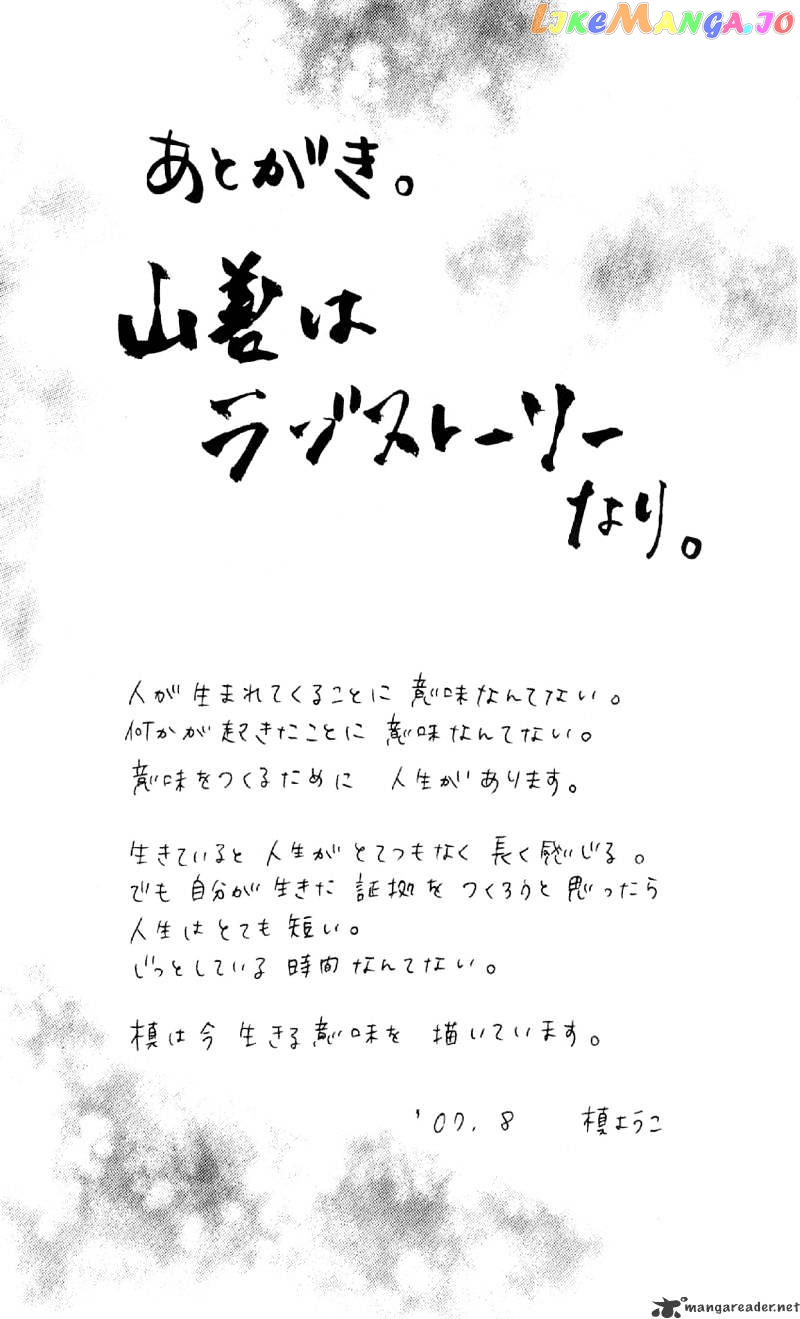 LIKEMANGA.IO
あとがき。
山善は
ラヴストーリー
なり。
人が生まれてくることに 意味なんてない。
何かが起きたことに 意味なんてない。
意味をつくるために 人生があります。
生きていると 人生がとてつもなく 長く感じる。
でも 自分が生きた 証拠を つくろうと思ったら
人生はとても短い。
じっとしている時間なんてない。
槙は今 生きる意味を 描いています。
'07. 8 槙ようこ
mangareader.net